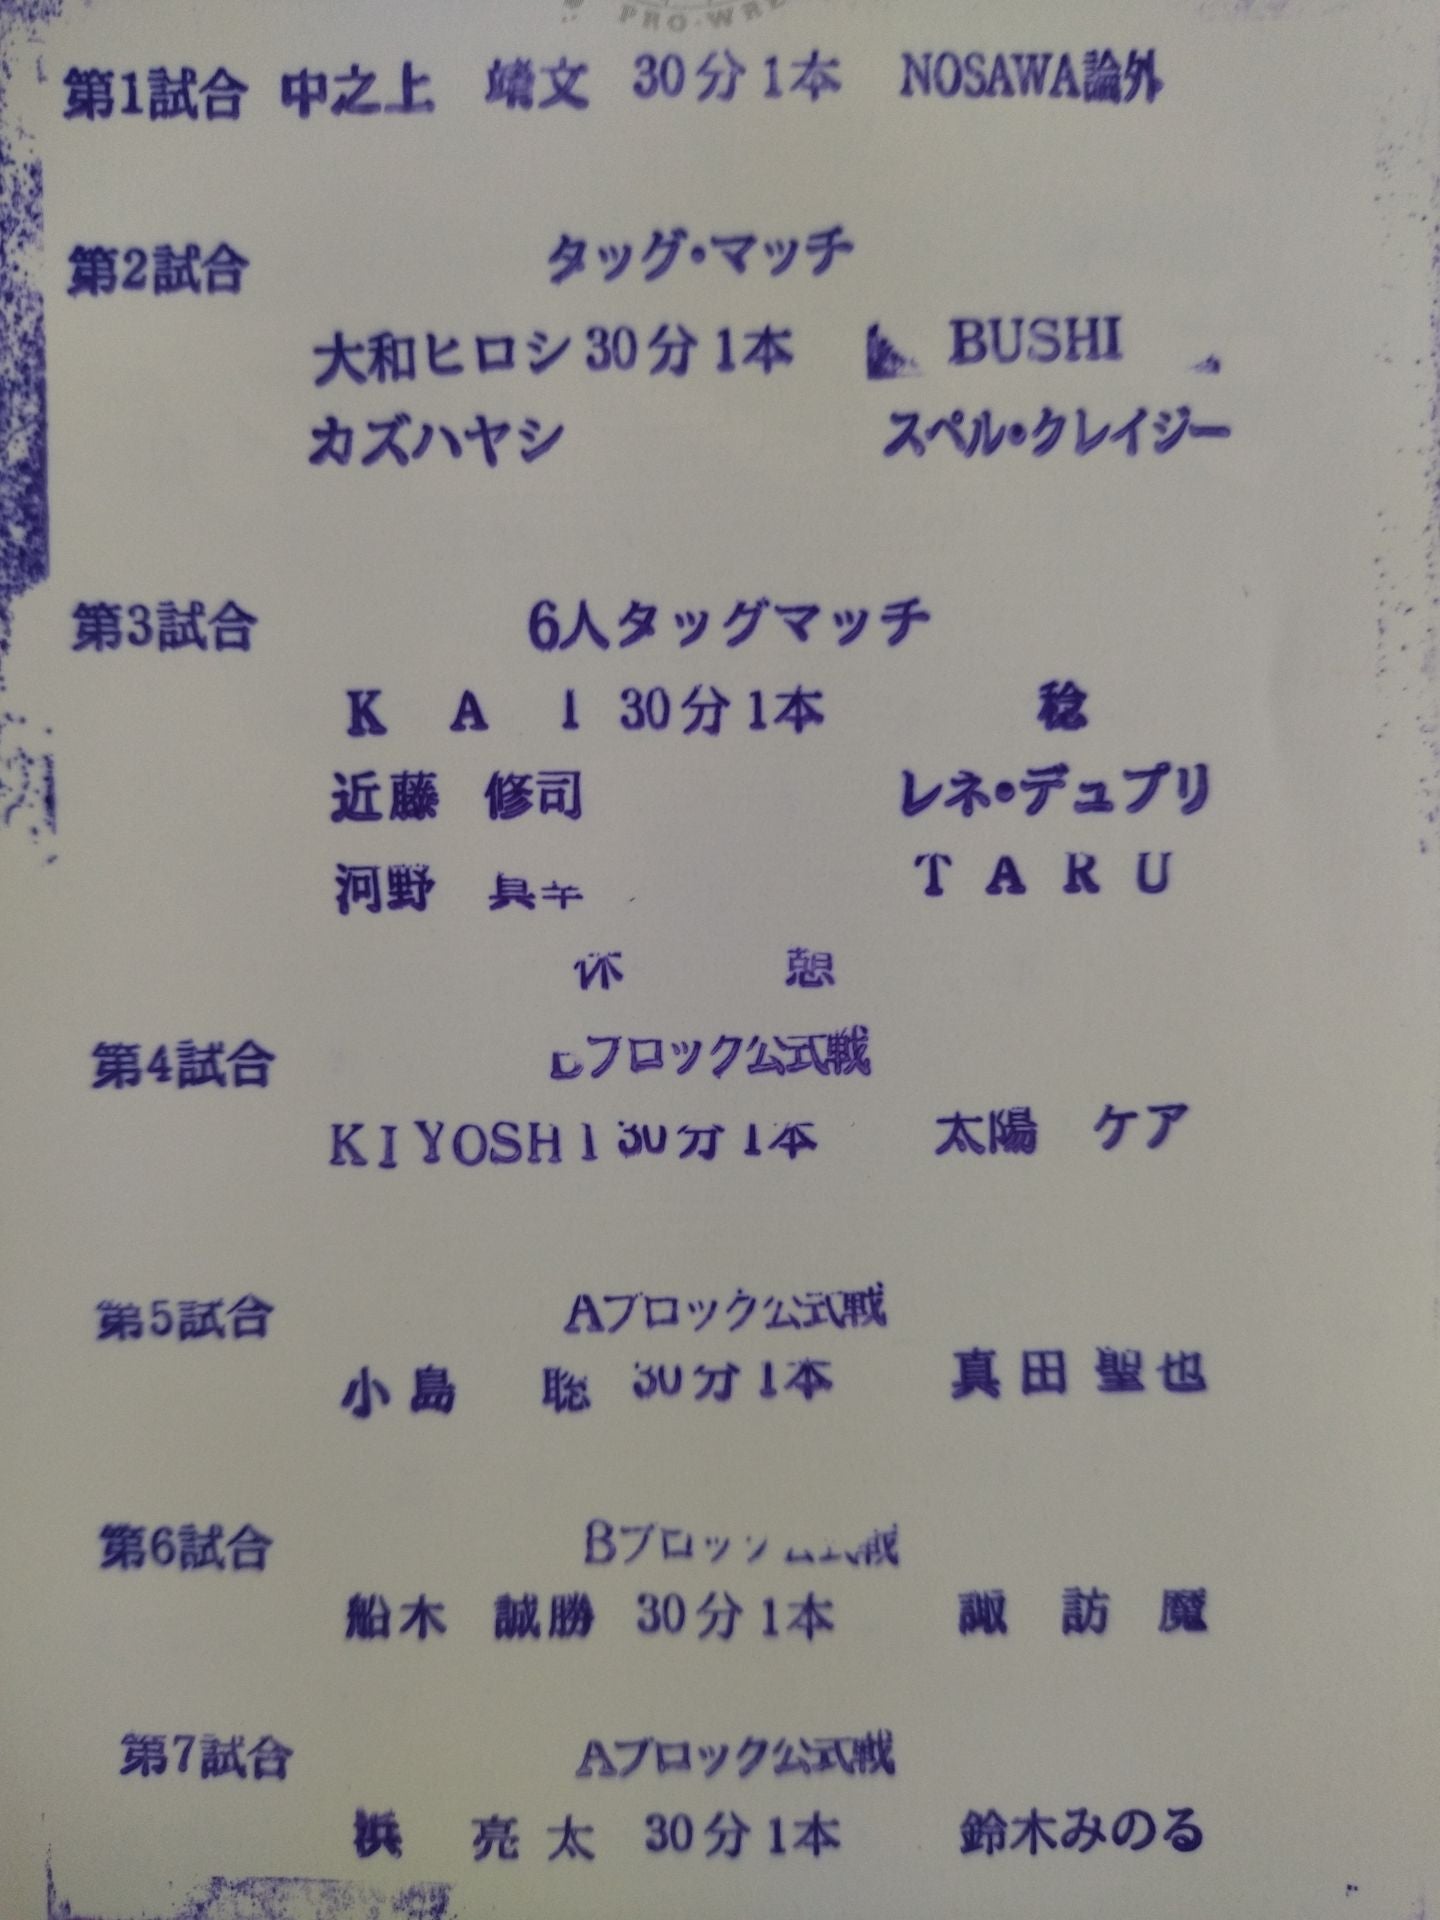 PRO-WRE
第1試合 中之上 靖文 30分1本 NOSAWA論外
第2試合 タッグ・マッチ
大和ヒロシ 30分1本 BUSHI
カズハヤシ スペル・クレイジー
第3試合 6人タッグマッチ
K A I 30分1本 稔
近藤 修司 レネ・デュプリ
河野 真幸 T A R U
休 憩
第4試合 Bブロック公式戦
KIYOSHI 30分1本 太陽 ケア
第5試合 Aブロック公式戦
小島 聡 30分1本 真田聖也
第6試合 Bブロック公式戦
船木 誠勝 30分1本 諏訪魔
第7試合 Aブロック公式戦
浜 亮太 30分1本 鈴木みのる